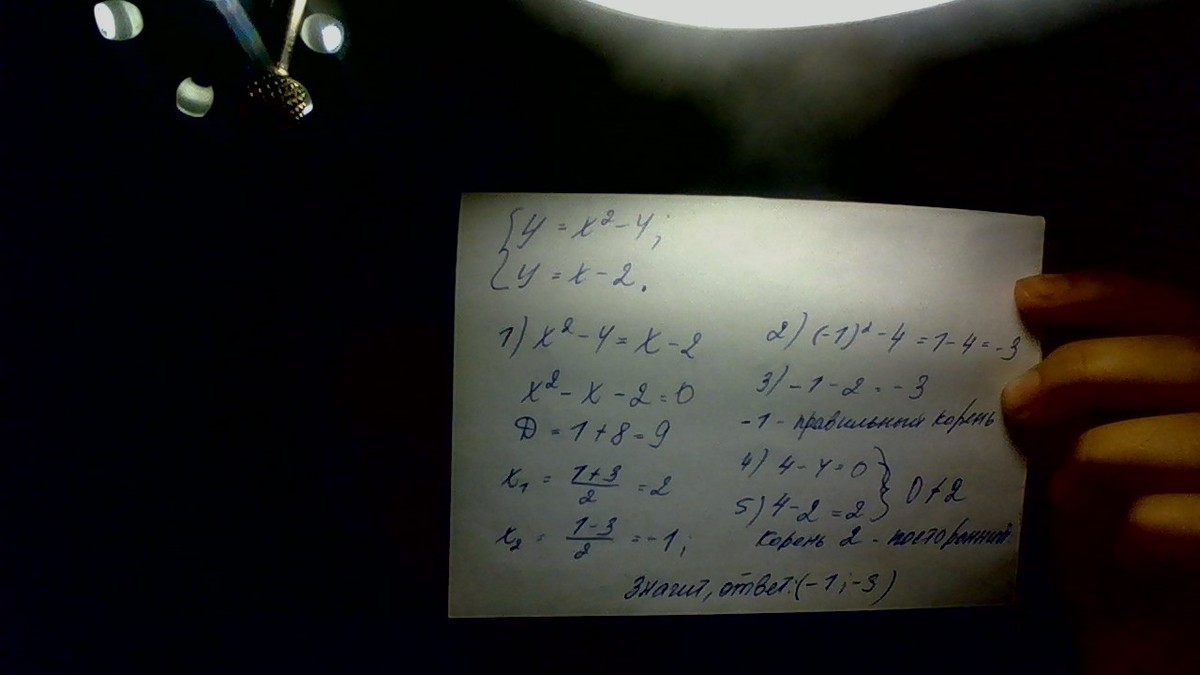 { y = x² - 4;
{ y = x - 2.
1) x² - 4 = x - 2
x² - x - 2 = 0
D = 1 + 8 = 9
x₁ = (1+3)/2 = 2
x₂ = (1-3)/2 = -1;
2) (-1)² - 4 = 1 - 4 = -3
3) -1 - 2 = -3
-1 - правильный корень
4) 4 - 4 = 0 }
5) 4 - 2 = 2 } 0 ≠ 2
корень 2 - посторонний
Значит, ответ: (-1; -3)